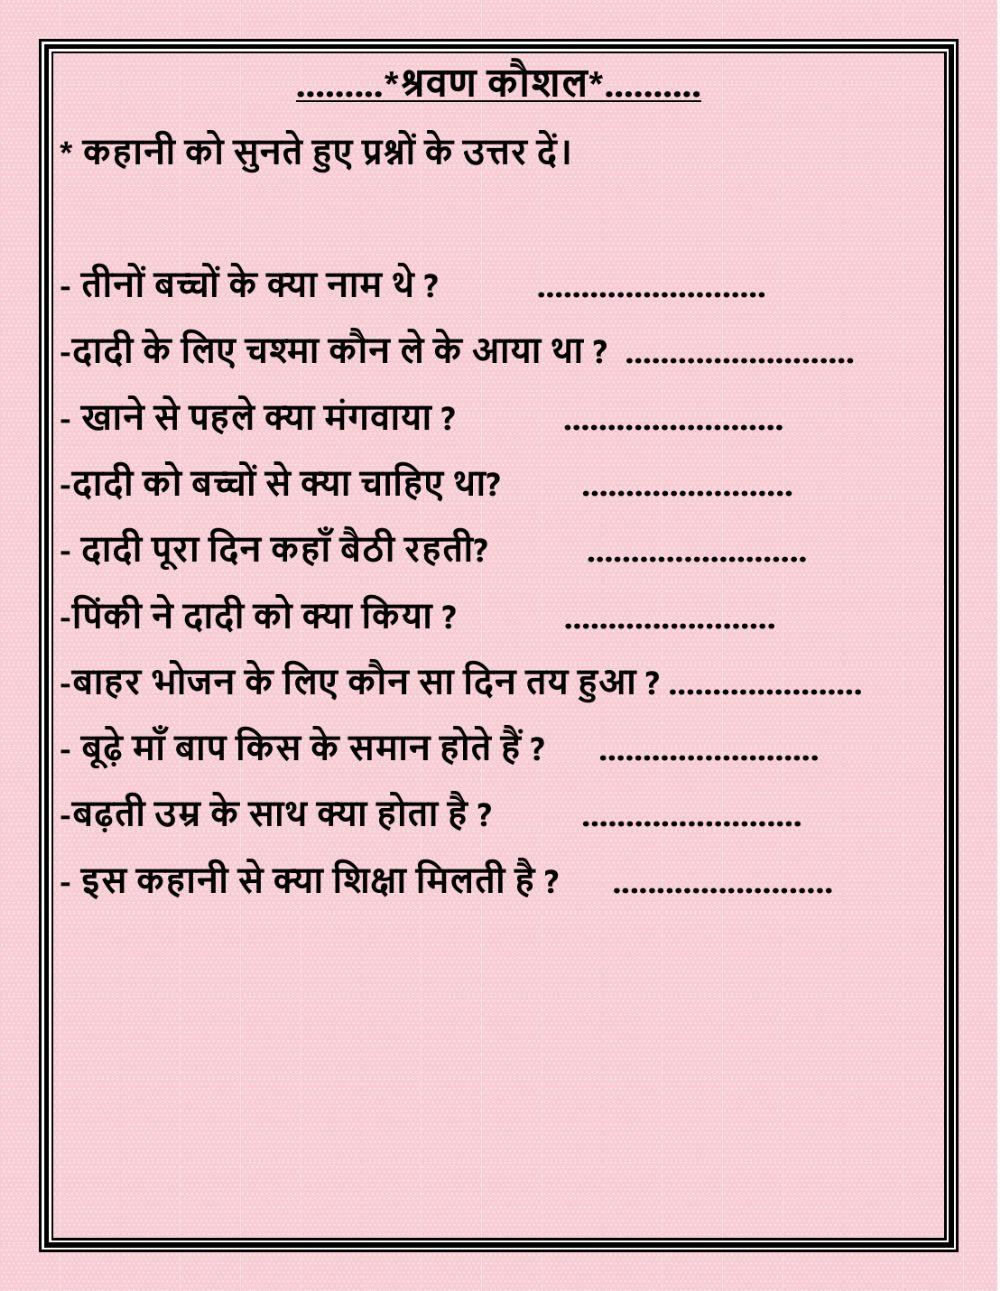 .........*श्रवण कौशल*..........
* कहानी को सुनते हुए प्रश्नों के उत्तर दें।
- तीनों बच्चों के क्या नाम थे ? ..........................
-दादी के लिए चश्मा कौन ले के आया था ? ..........................
- खाने से पहले क्या मंगवाया ? .........................
-दादी को बच्चों से क्या चाहिए था? ........................
- दादी पूरा दिन कहाँ बैठी रहती? .........................
-पिंकी ने दादी को क्या किया ? ........................
-बाहर भोजन के लिए कौन सा दिन तय हुआ ? ......................
- बूढ़े माँ बाप किस के समान होते हैं ? .........................
-बढ़ती उम्र के साथ क्या होता है ? .........................
- इस कहानी से क्या शिक्षा मिलती है ? .........................